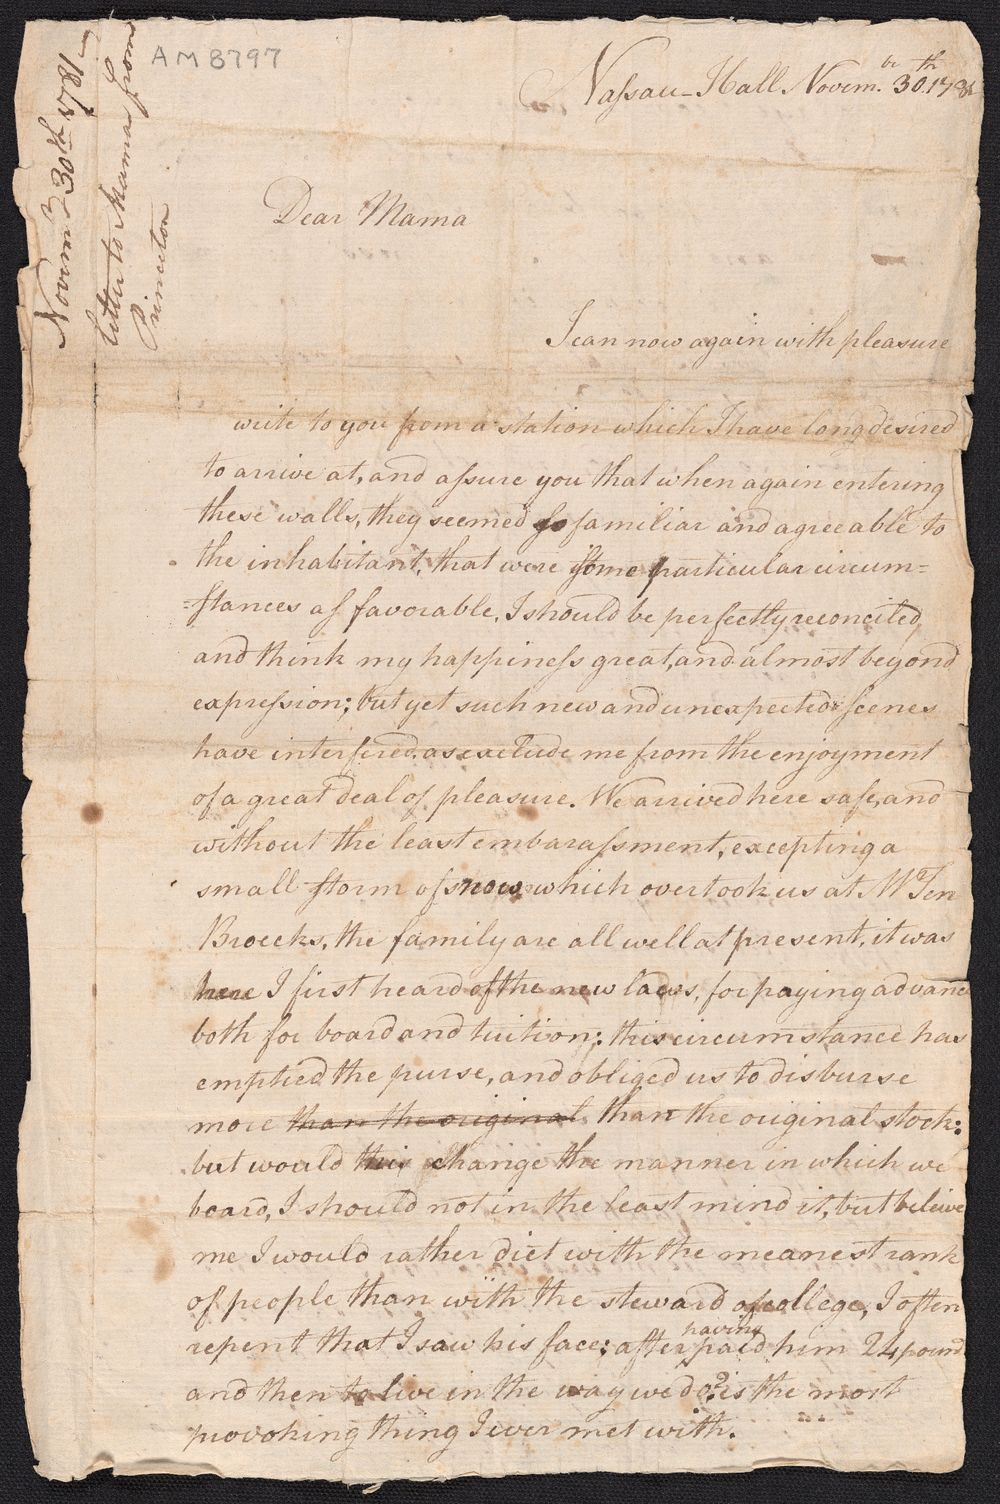 AM 8797
Novemr. 30th 1781
letter to Mama from
Princeton
Nassau-Hall Novembr. 30th. 1781
Dear Mama
I can now again with pleasure
write to you from a station which I have long desired
to arrive at, and assure you that when again entering
these walls, they seemed so familiar and agreeable to
the inhabitant, that were some particular circum=
=stances as favorable, I should be perfectly reconciled,
and think my happiness great, and almost beyond
expression; but yet such new and unexpected scenes
have interfered, as exclude me from the enjoyment
of a great deal of pleasure. We arrived here safe, and
without the least embarassment, excepting a
small storm of snow, which overtook us at Mr Ten
Broecks, the family are all well at present, it was
here I first heard of the new laws, for paying advance
both for board and tuition; this circumstance has
emptied the purse, and obliged us to disburse
more than the original than the original stock:
but would this change the manner in which we
board, I should not in the least mind it, but beleive
me I would rather diet with the meanest rank
of people than with the steward of college, I often
repent that I saw his face; after having paid him 24 pound
and then to live in the way we do? is the most
provoking thing I ever met with.